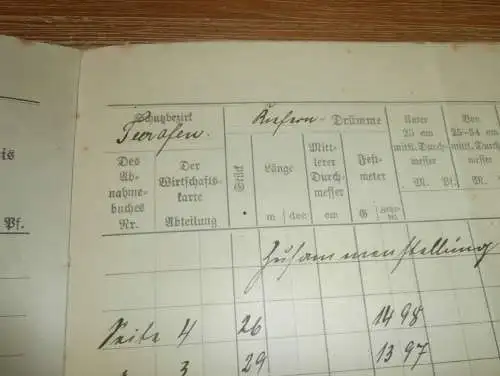 Schutzbezirk
Teerofen.
Kiefern - Drümme
Unter
23 cm
mittl. Durch-
messer
M. Pf.
Von
25-34 cm
mittl. Durch-
messer
M.
Des
Ab-
nahme-
buches
Nr.
Der
Wirtschafts-
karte
Abteilung
Stück
Länge
m dec
Mitt-
lerer
Durch-
messer
cm
Fest-
meter
G
is
Pf.
Zusammenstellung
Seite 4 26 14 98
" 3 29 13 97